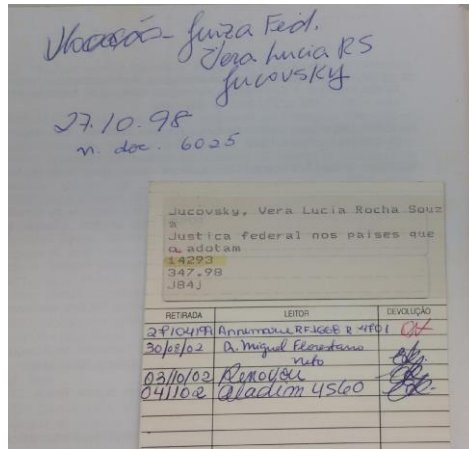 Doação - Juíza Fed.
Vera Lucia RS
Jucovsky
27.10.98
n. doc. 6025
Jucovsky, Vera Lucia Rocha Souz
a
Justica federal nos paises que
a adotam
14293
347.98
J84j
RETIRADA LEITOR DEVOLUÇÃO
Annemarie
30/08/02 D. Miguel Florestano
Neto
03/10/02 Renovou
04/10/02 Aladim 4560